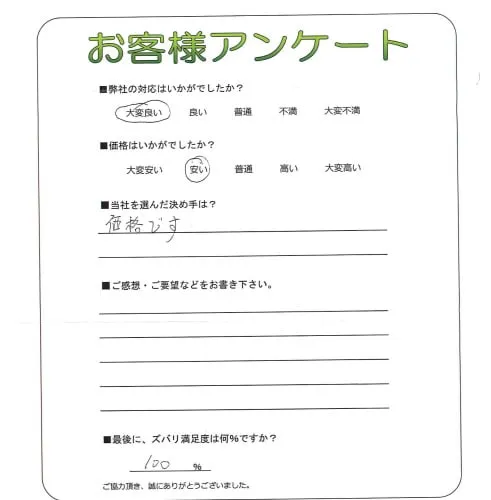 お客様アンケート
■弊社の対応はいかがでしたか？
大変良い 良い 普通 不満 大変不満
■価格はいかがでしたか？
大変安い 安い 普通 高い 大変高い
■当社を選んだ決め手は？
価格です
■ご感想・ご要望などをお書き下さい。
■最後に、ズバリ満足度は何%ですか？
100 %
ご協力頂き、誠にありがとうございました。